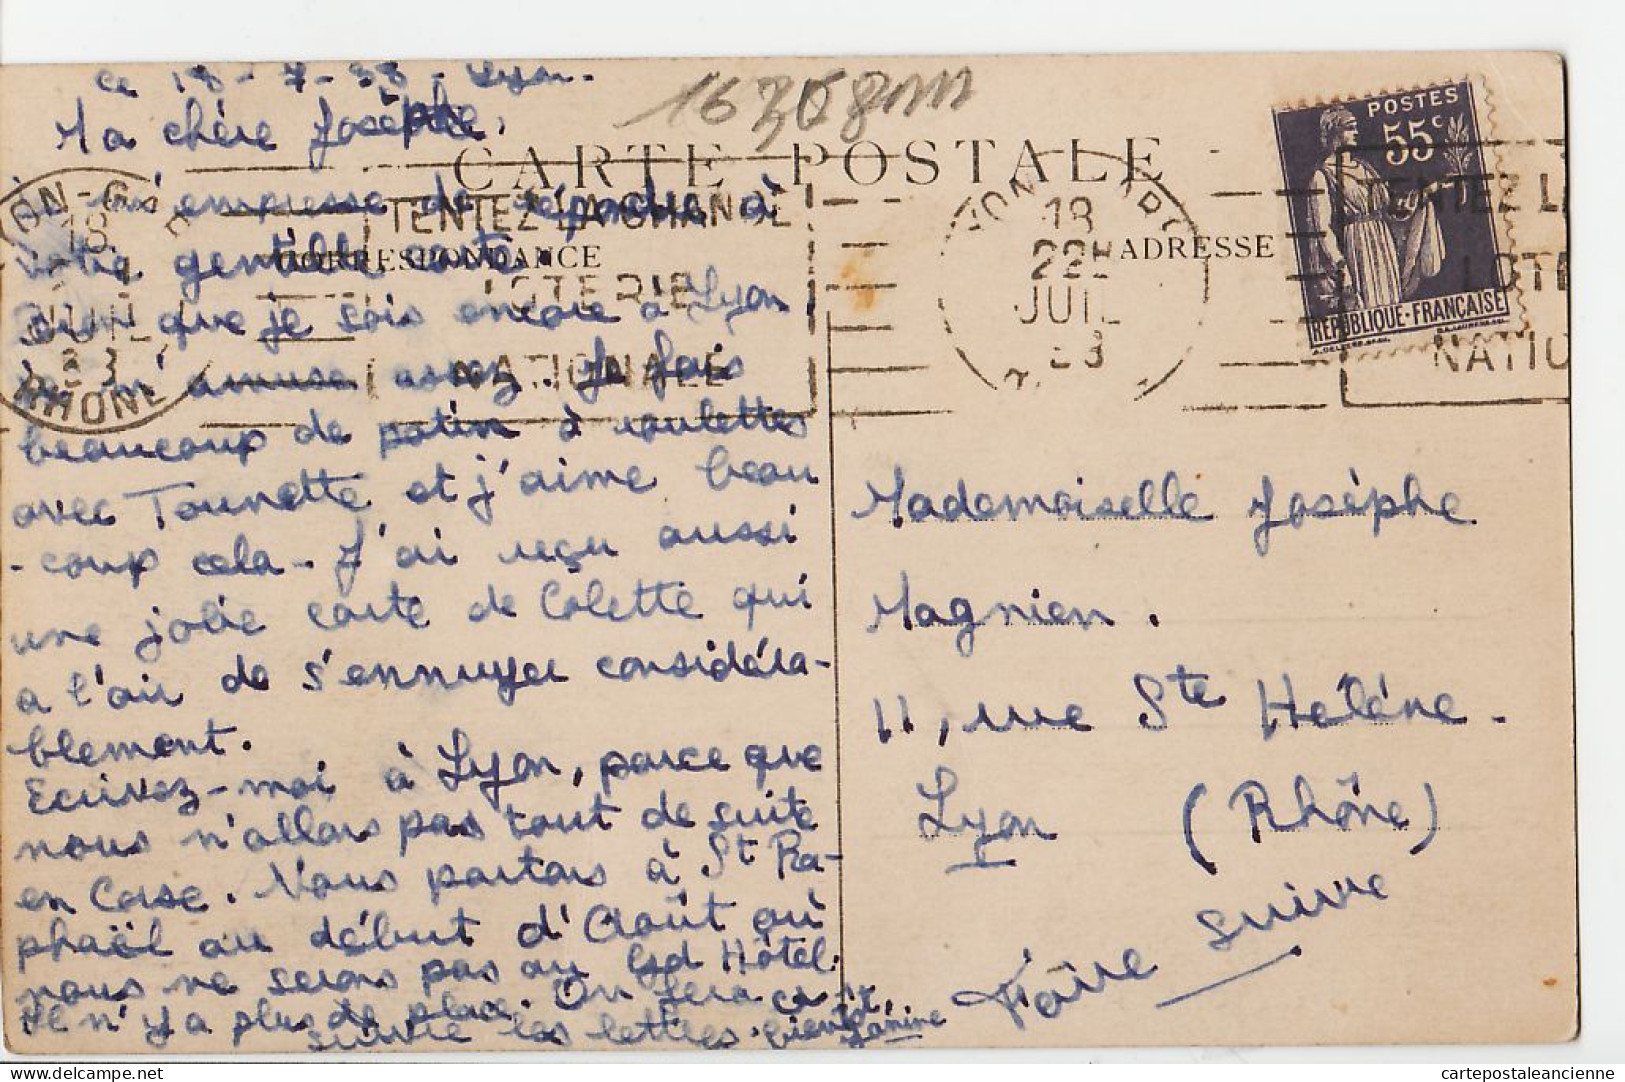 ce 18-7-38-Lyon.
Ma chère Josèphe,
16308mm
CARTE POSTALE
POSTES
55c
REPUBLIQUE-FRANÇAISE
je m'empresse de répondre à
votre gentille carte.
CORRESPONDANCE
ADRESSE
TENTEZ LA CHANCE
LOTERIE
NATIONALE
LYON-GARE
18
22H
JUIL
38
RHONE
TENTEZ LA
LOTE
NATIO
que je sois encore à Lyon
je m'amuse assez. Je fais
beaucoup de patin à roulettes
avec Tounette et j'aime beau
-coup cela-. J'ai reçu aussi
une jolie carte de Colette qui
a l'air de s'ennuyer considéra-
blement.
Ecrivez-moi à Lyon, parce que
nous n'allons pas tout de suite
en Corse. Nous partons à St Ra-
phaël au début d'Août où
nous ne serons pas au Gd Hôtel.
Il n'y a plus de place. On fera
suivre les lettres. bientôt,
Janine
Mademoiselle Josèphe
Magnien.
11, rue Ste Hélène-
Lyon (Rhône)
Faire suivre
delcampe.net
cartepostaleancienne